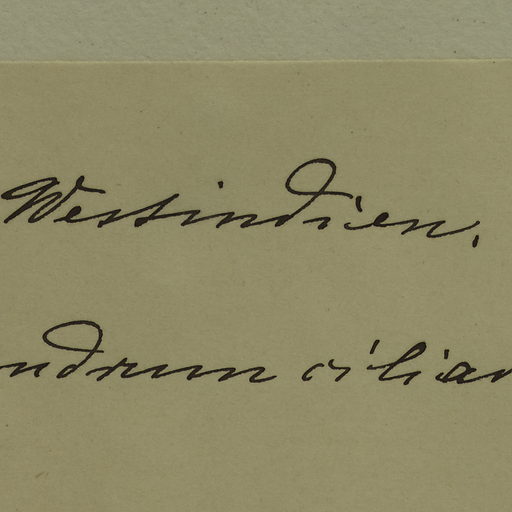 Westindien.
ndrum cilian